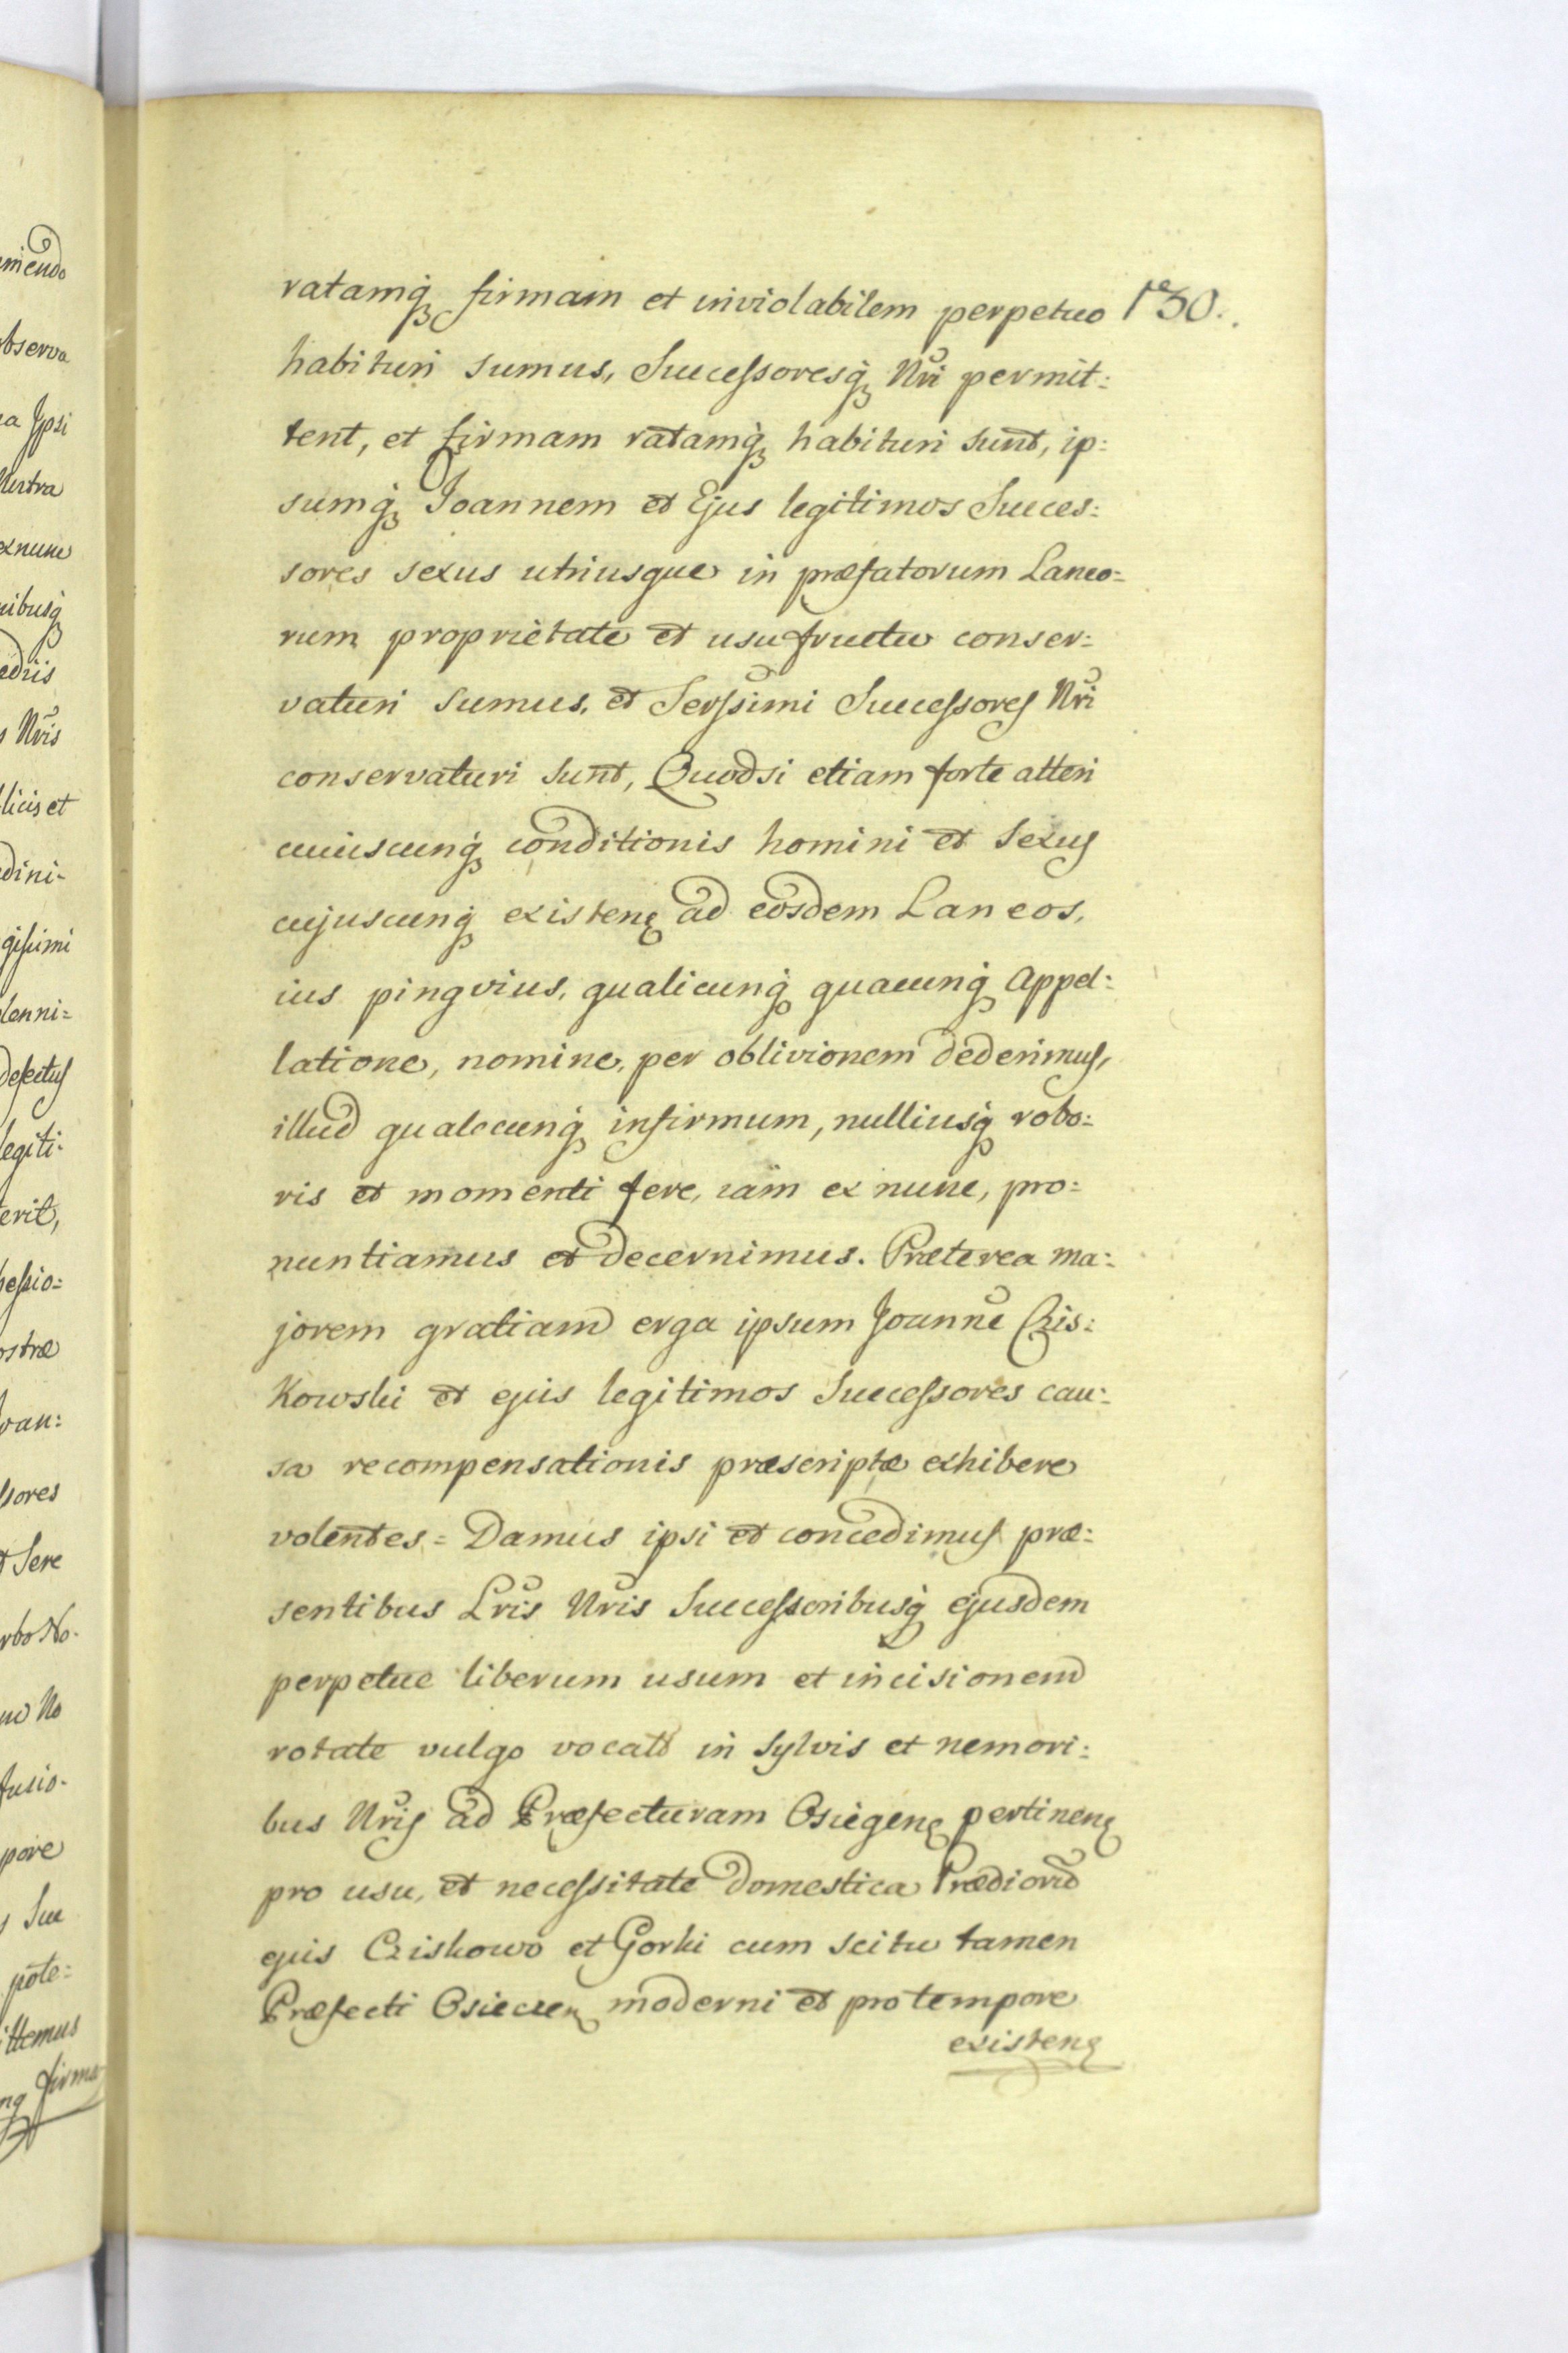 130.
ratamq́ȝ firmam et inviolabilem perpetuo
habituri sumus, Successoresq́ȝ Nr̃i permit:
tent, et firmam ratamq́ȝ habituri sunt, ip:
sumq́ȝ Joannem et Ejus legitimos Succes:
sores sexus utriusque in præfatorum Laneo:
rum proprietate et usufructu conser:
vaturi sumus, et Serssimi Successores Nr̃i
conservaturi sunt, Quodsi etiam forte alteri
cuiuscunq́ȝ conditionis homini et sexus
cujuscunq́ȝ existenȝ ad eosdem Laneos,
ius pingvius, qualicunq́ȝ quacunq́ȝ Appel:
latione, nomine, per oblivionem dederimus,
illud qualecunq́ȝ infirmum, nulliusq́ȝ robo:
ris et momenti fere, iam ex nunc, pro:
nuntiamus et decernimus. Præterea ma:
jorem gratiam erga ipsum Joannẽ Czis:
kowski et ejus legitimos Successores cau:
sa recompensationis præscriptæ exhibere
volentes = Damus ipsi et concedimus præ:
sentibus Lr̃is Nr̃is Successoribusq́ȝ ejusdem
perpetue liberum usum et incisionem
rotate vulgo vocat in sylvis et nemori:
bus Nr̃is ad Præfecturam Osiegenȝ pertinenȝ
pro usu, et necessitate domestica Prædior̃
ejus Cziskowo et Gorki cum scitu tamen
Præfecti Osiecenȝ moderni et pro tempore
existenȝ